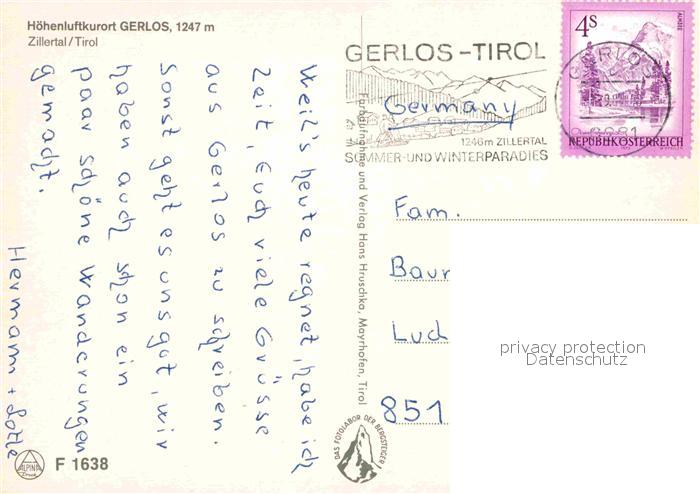 Höhenluftkurort GERLOS, 1247 m
Zillertal/Tirol
Weil's heute regnet, habe ich
Zeit, Euch viele Grüsse
aus Gerlos zu schreiben.
Sonst geht es uns gut, wir
haben auch schon ein
paar schöne Wanderungen
gemacht.
Hermann + Lotte
ALPINA
Druck
F 1638
Farbaufnahme und Verlag Hans Hruschka, Mayrhofen, Tirol
DAS FOTOLABOR DER BERGSTEIGER
GERLOS-TIROL
1246m ZILLERTAL
SOMMER-UND WINTERPARADIES
Germany
GERLOS
6281
4S
ALMSEE
REPUBLIK ÖSTERREICH
Fam.
Baur
Lud
851
privacy protection
Datenschutz